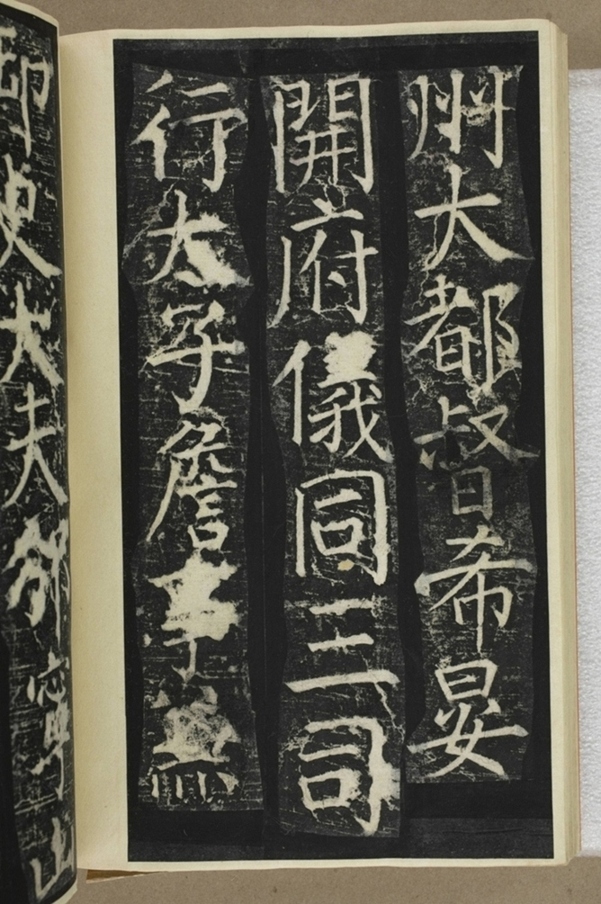 州大都督希晏
開府儀同三司
行太子詹事兼
御史大夫邠寧山